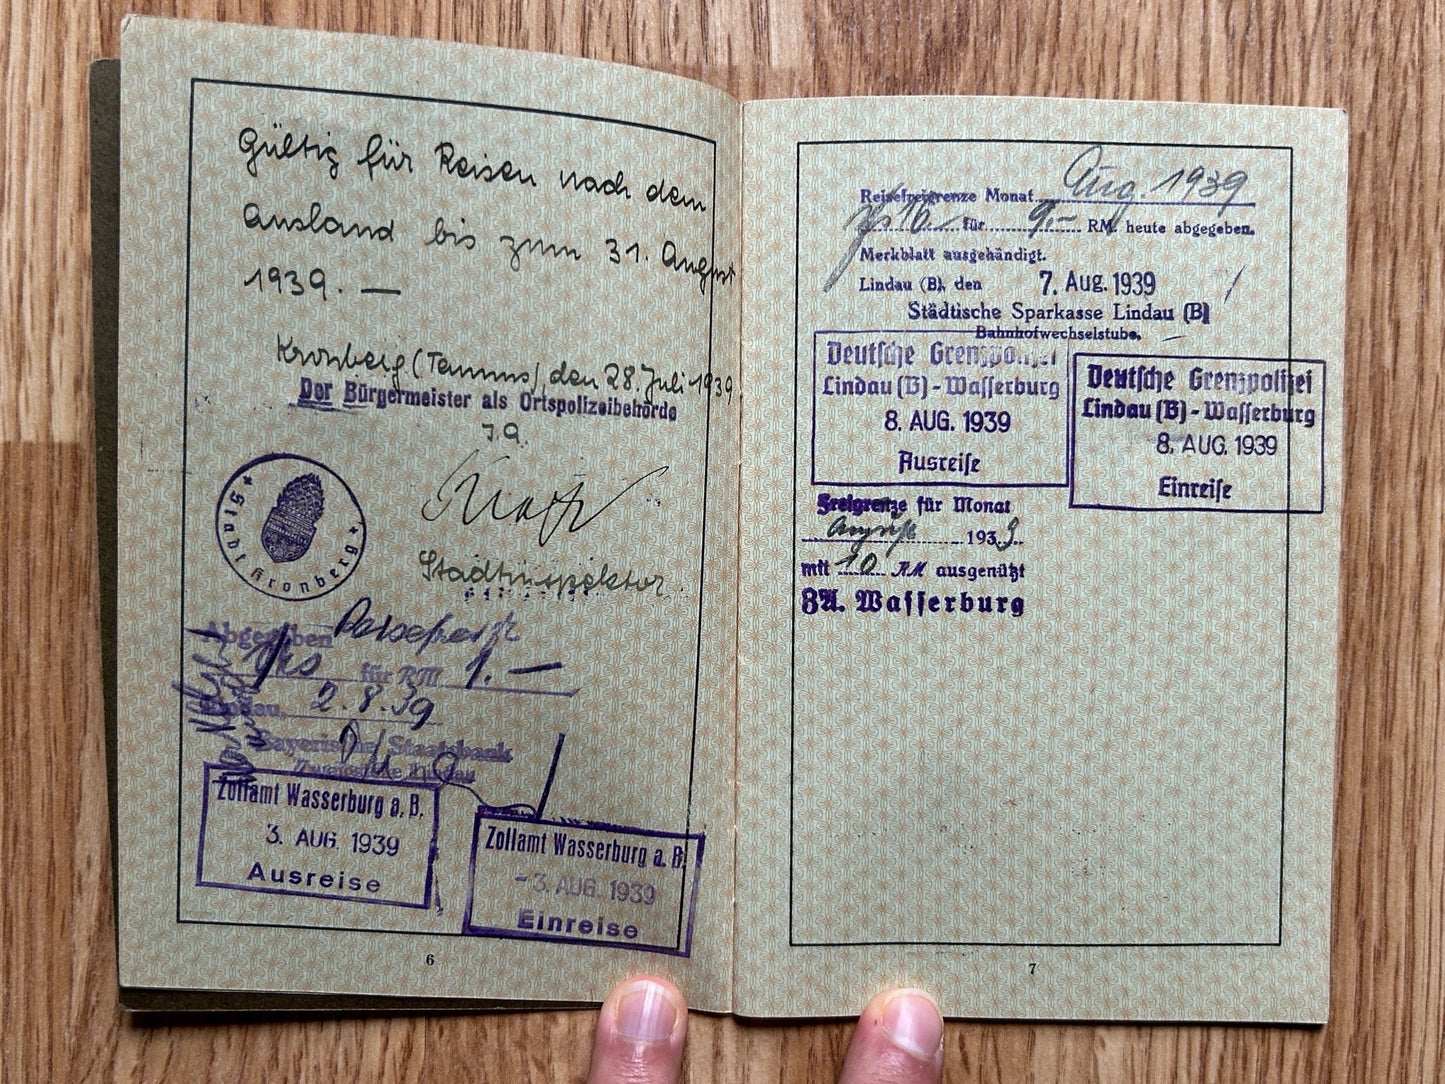 Gültig für Reisen nach dem
Ausland bis zum 31. August
1939. —
Kronberg (Taunus), den 28. Juli 1939
Der Bürgermeister als Ortspolizeibehörde
J. A.
Stadtinspektor
Stadt Kronberg
Abgegeben
für RM 1.—
Lindau, 2.8.39
Bayerische Staatsbank
Lindau
Zollamt Wasserburg a. B.
3. AUG. 1939
Ausreise
Zollamt Wasserburg a. B.
- 3. AUG. 1939
Einreise
6
Reisefreigrenze Monat Aug. 1939
für 9.- RM. heute abgegeben.
Merkblatt ausgehändigt.
Lindau (B), den 7. Aug. 1939
Städtische Sparkasse Lindau (B)
Bahnhofwechselstube.
Deutsche Grenzpolizei
Lindau (B) - Wasserburg
8. AUG. 1939
Ausreise
Deutsche Grenzpolizei
Lindau (B) - Wasserburg
8. AUG. 1939
Einreise
Freigrenze für Monat
August 1939
mit 10 RM ausgenützt
ZA. Wasserburg
7